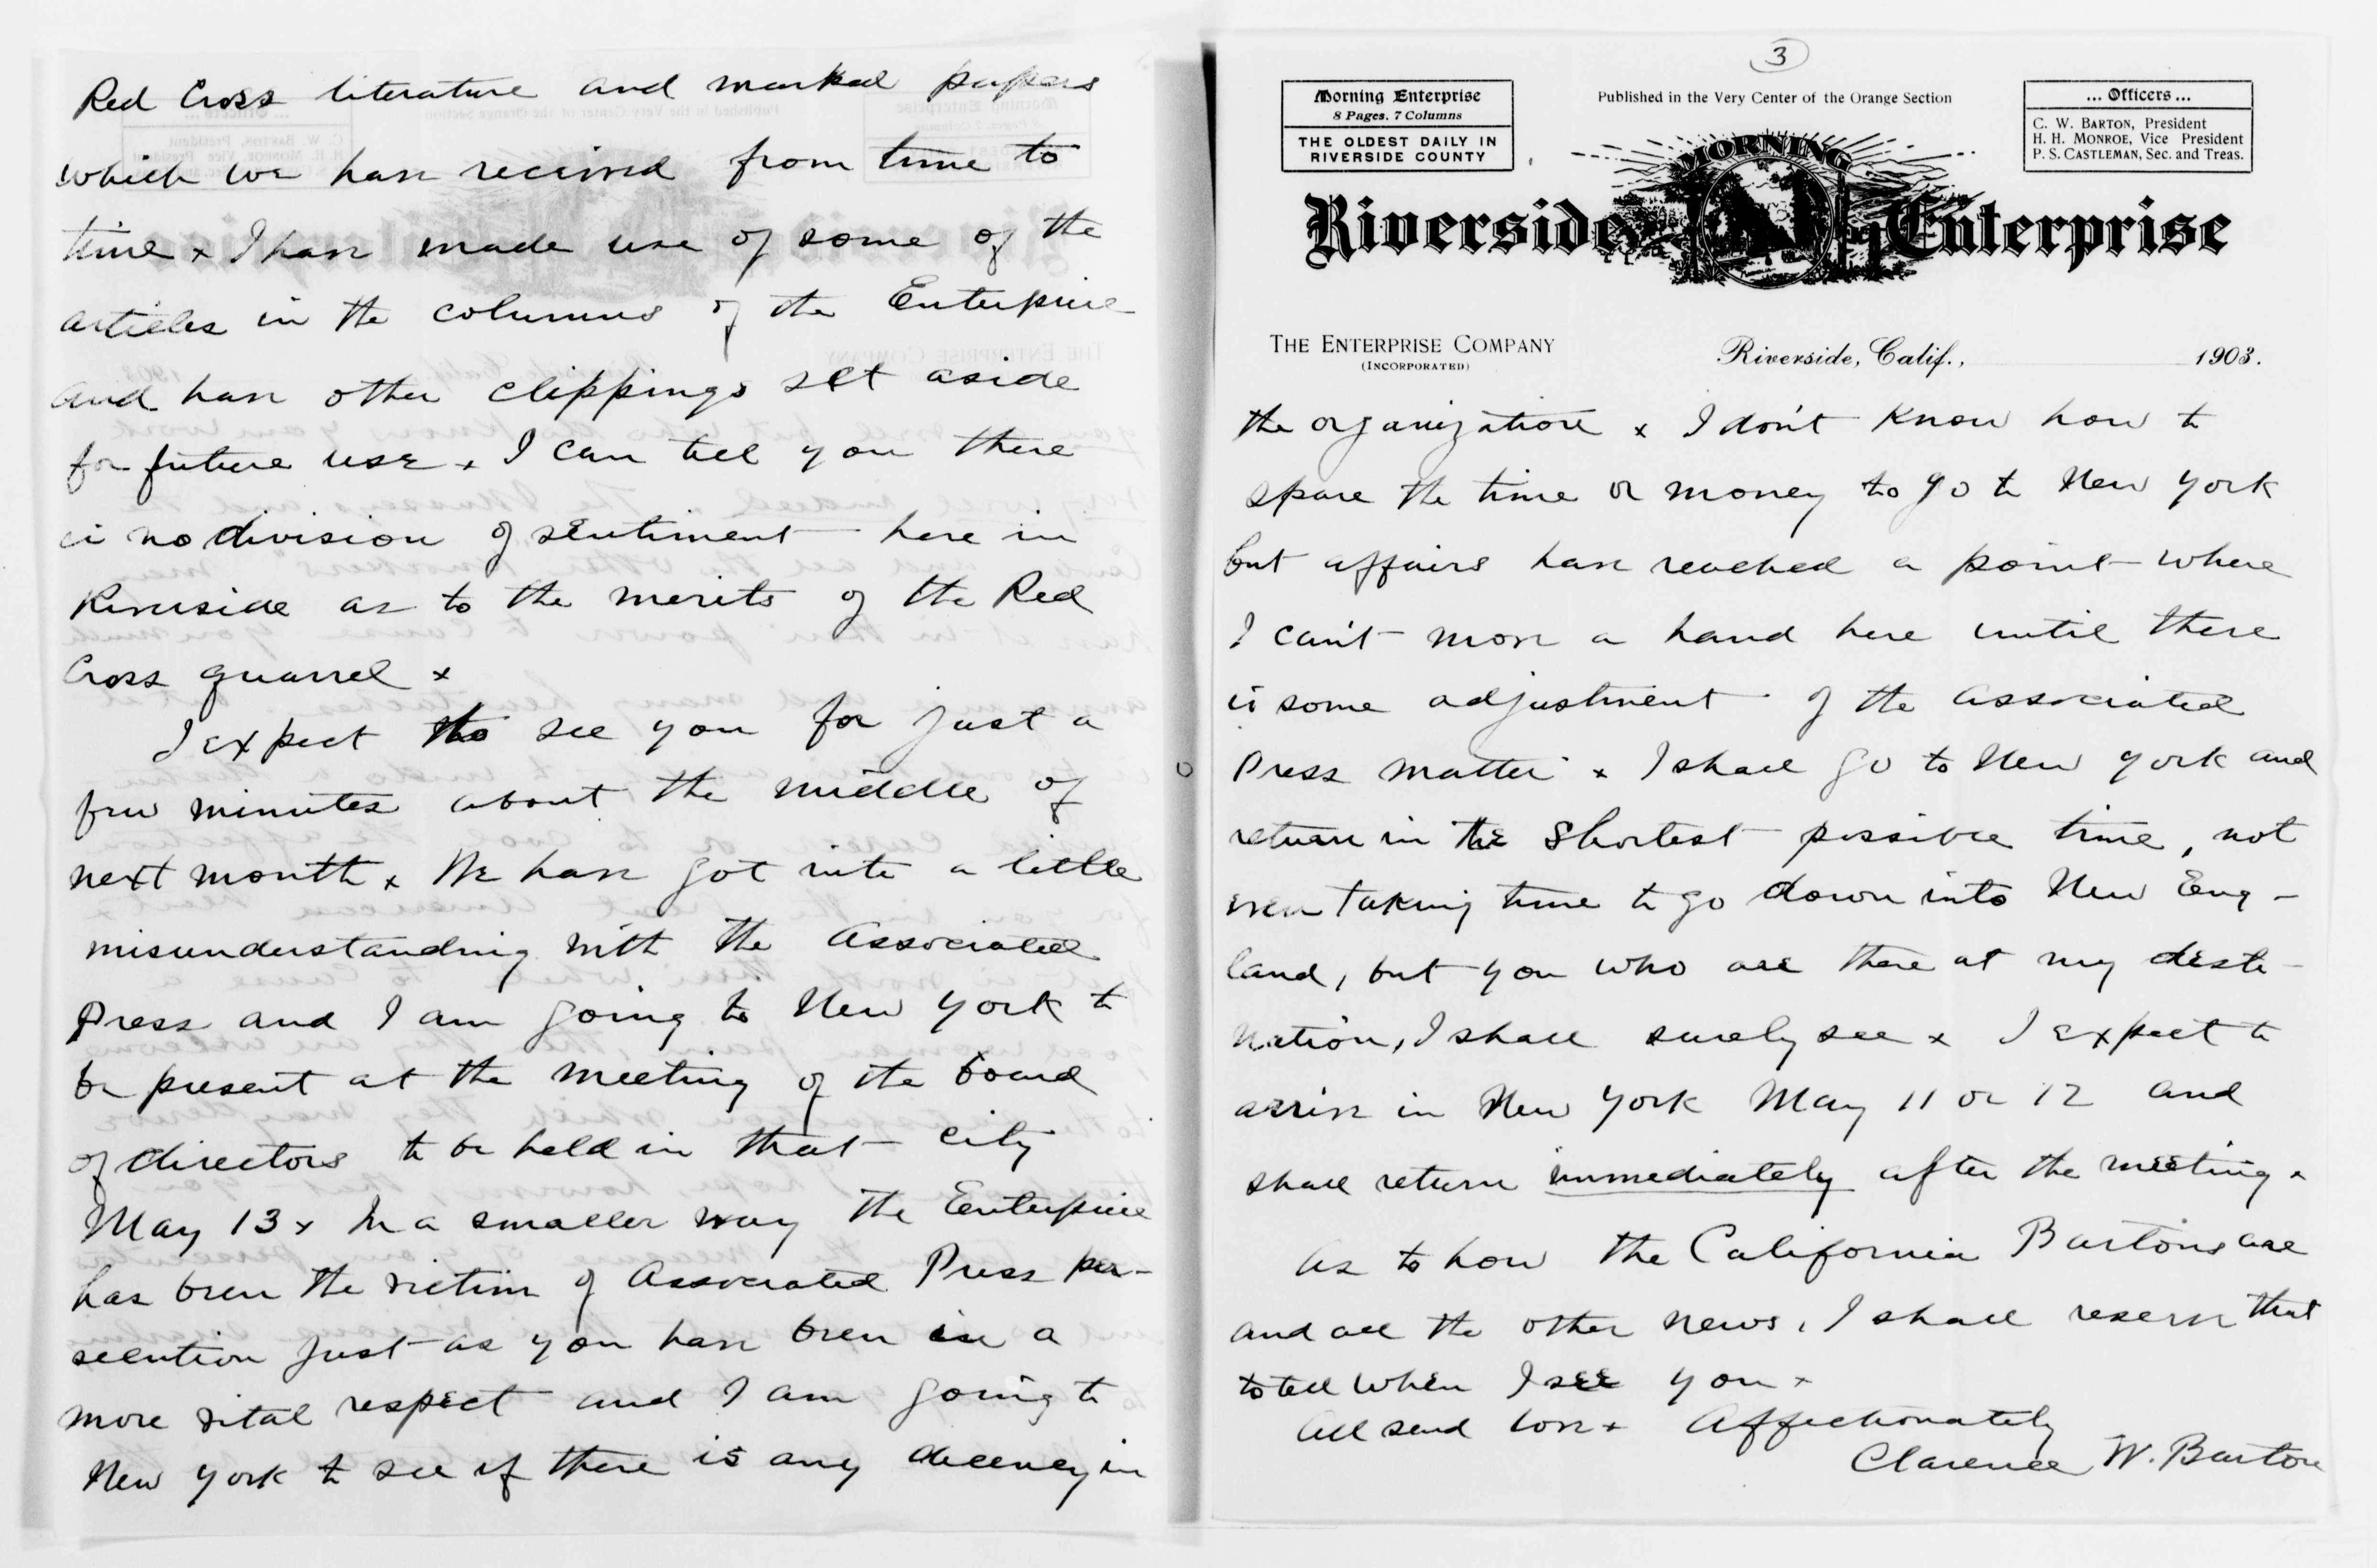 Red Cross literature and marked papers
which we have received from time to
time x I have made use of some of the
articles in the columns of the Enterprise
and have other clippings set aside
for future use x I can tell you there
is no division of sentiment here in
Riverside as to the merits of the Red
Cross quarrel x
I expect to see you for just a
few minutes about the middle of
next month x We have got into a little
misunderstanding with the Associated
Press and I am going to New York to
be present at the meeting of the board
of directors to be held in that city
May 13 x In a smaller way the Enterprise
has been the victim of Associated Press per-
secution just as you have been in a
more vital respect and I am going to
New York to see if there is any decency in
3
Morning Enterprise
8 Pages. 7 Columns
THE OLDEST DAILY IN
RIVERSIDE COUNTY
Published in the Very Center of the Orange Section
... Officers ...
C. W. BARTON, President
H. H. MONROE, Vice President
P. S. CASTLEMAN, Sec. and Treas.
MORNING
Riverside Enterprise
THE ENTERPRISE COMPANY
(INCORPORATED)
Riverside, Calif., 1903.
the organization x I don't know how to
spare the time or money to go to New York
but affairs have reached a point where
I can't move a hand here until there
is some adjustment of the Associated
Press matter x I shall go to New York and
return in the shortest possible time, not
even taking time to go down into New Eng-
land, but you who are there at my desti-
nation, I shall surely see x I expect to
arrive in New York May 11 or 12 and
shall return immediately after the meeting x
As to how the California Bartons are
and all the other news, I shall reserve that
to tell when I see you x
All send love x Affectionately
Clarence W. Barton